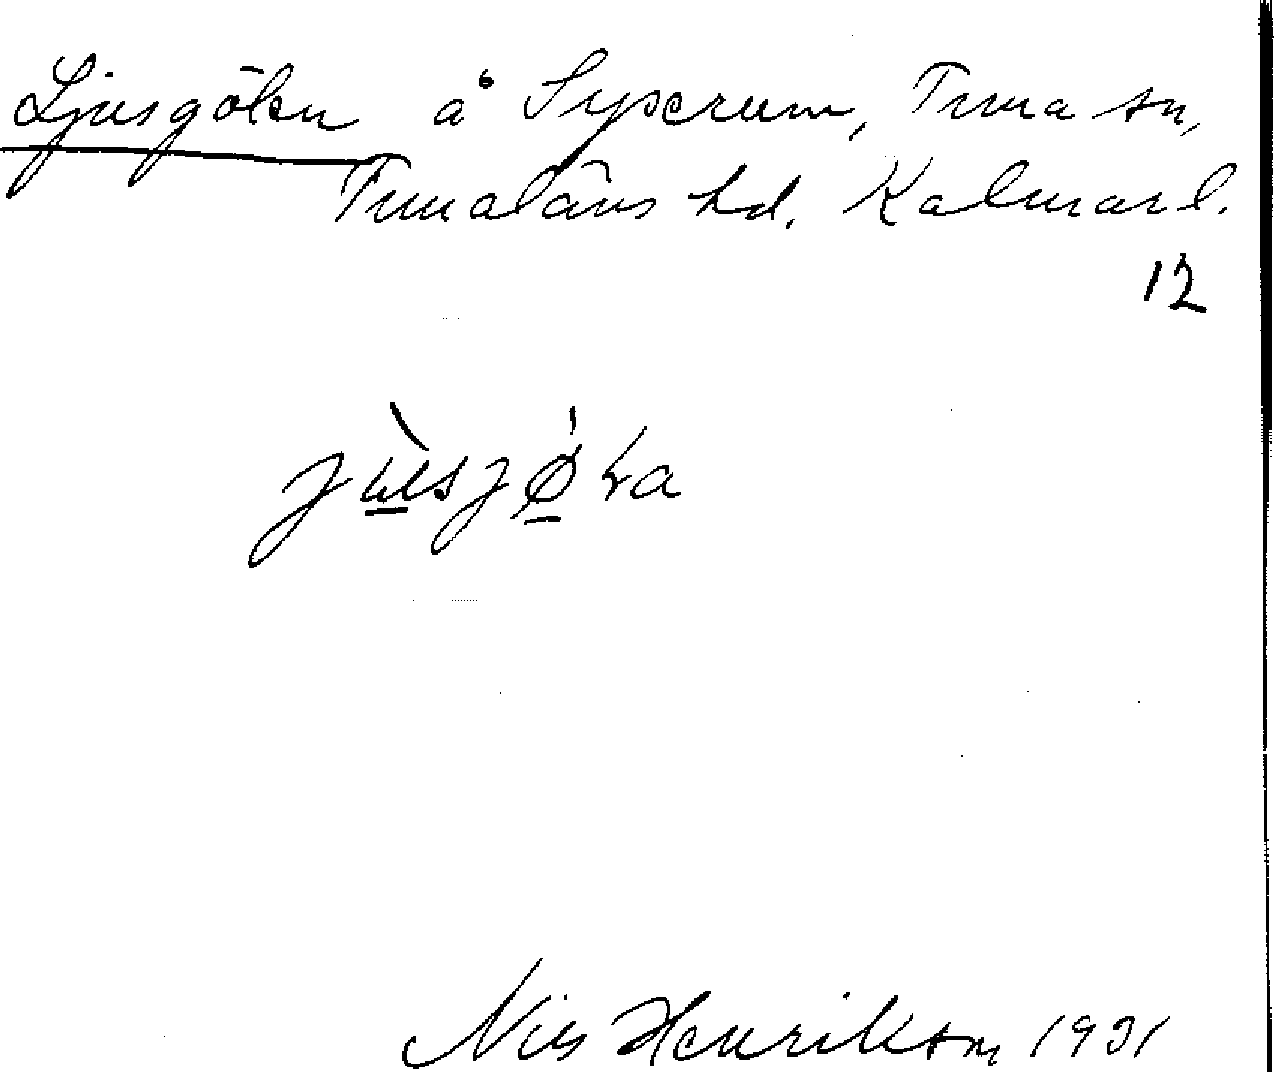 Ljusgölen å Syserum, Tuna sn,
Tunaläns hd. Kalmar l.
12
Nils Henrikson 1931